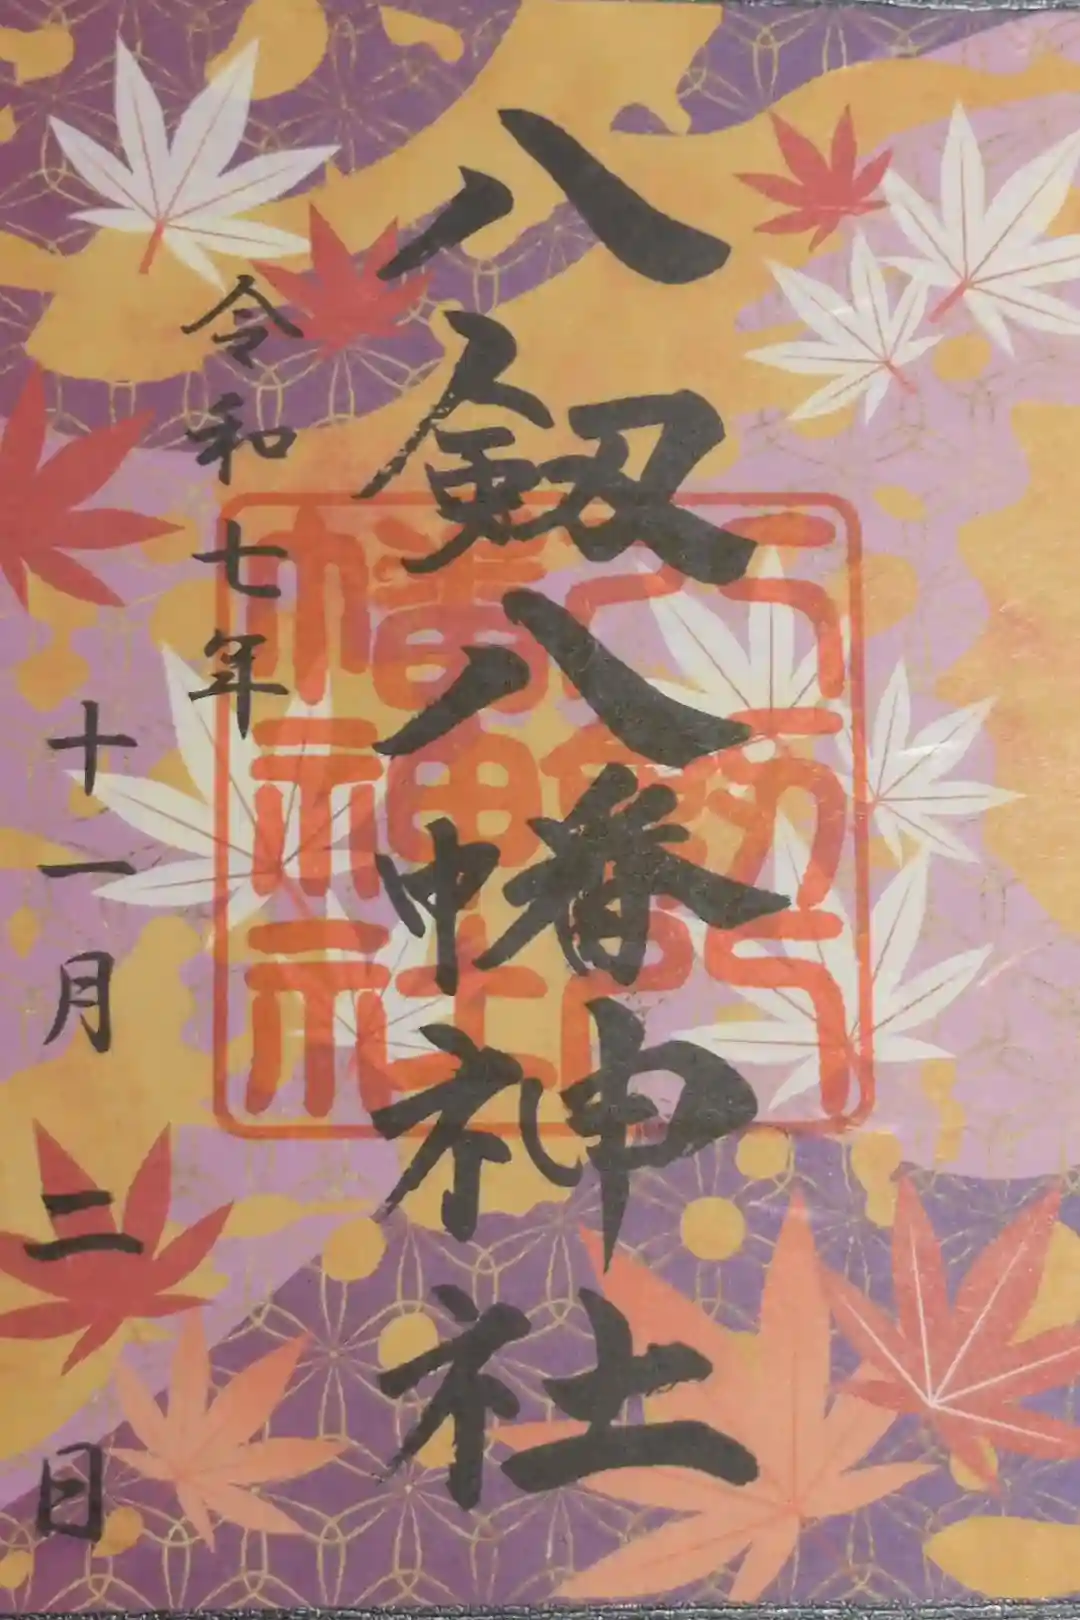 八劔八幡神社
令和七年
十一月二日
八劔八幡神社